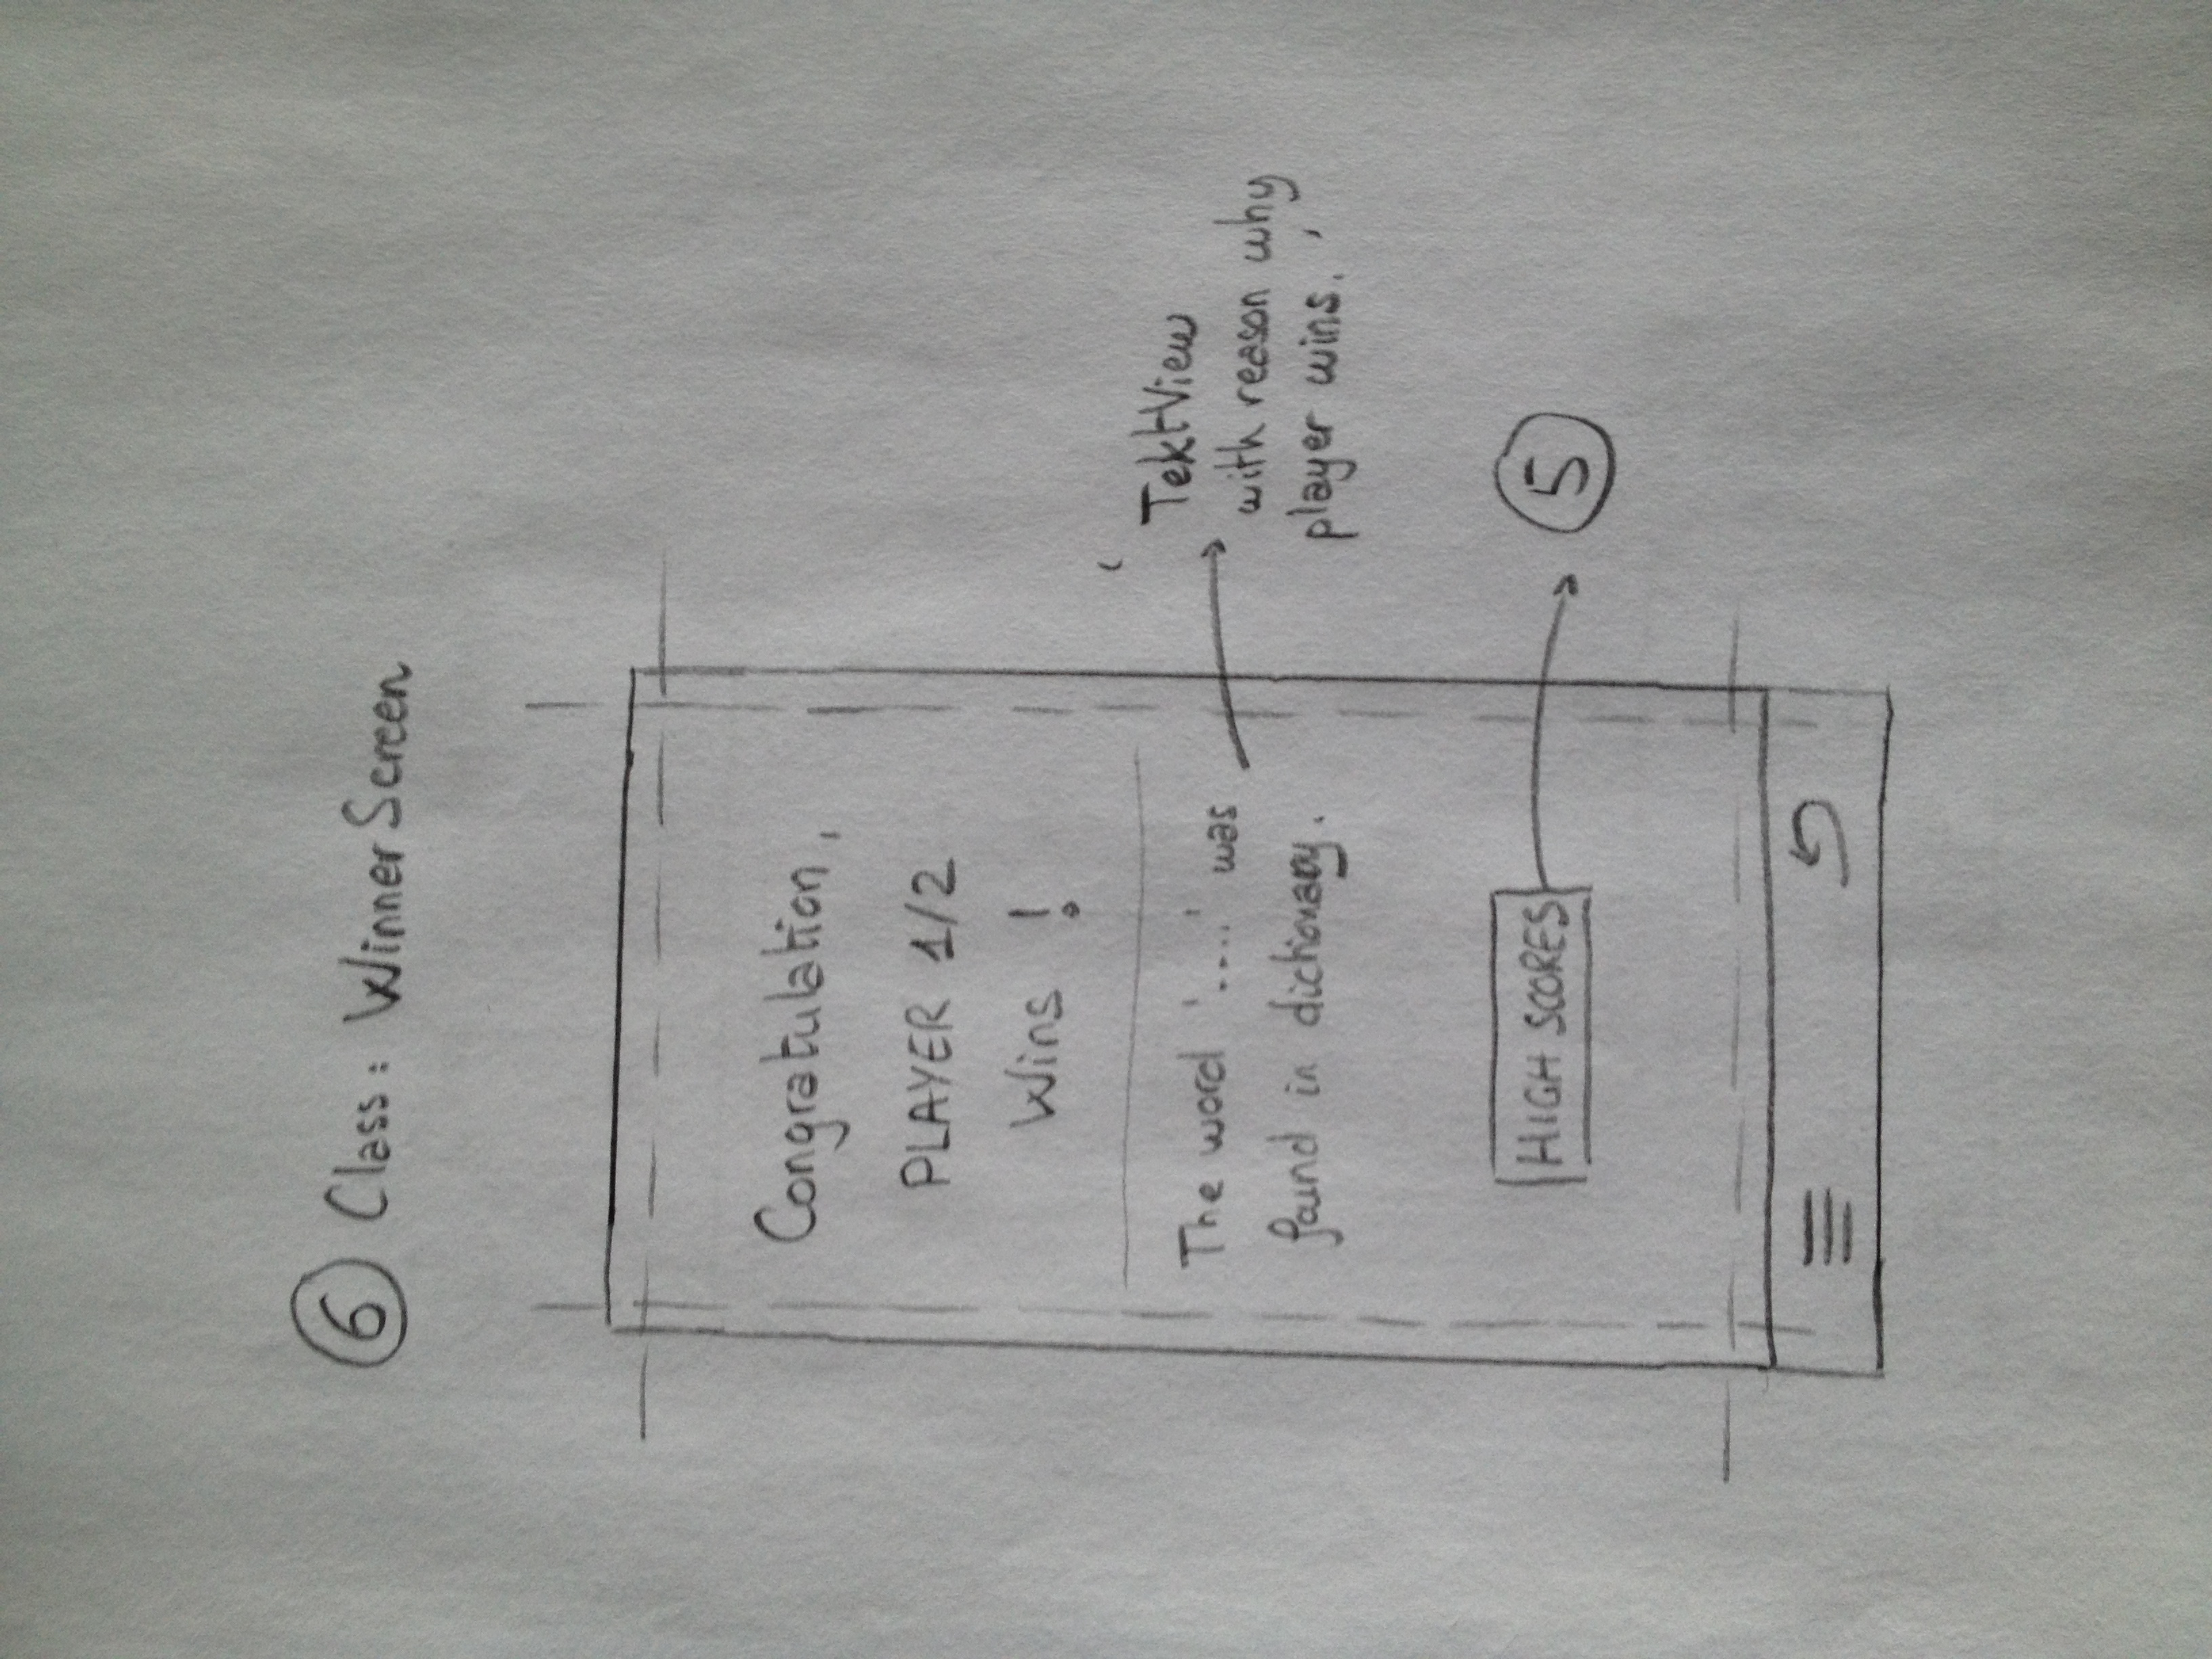 6 Class: WinnerScreen
Congratulation,
PLAYER 1/2
Wins !
The word '....' was
found in dictionary.
' TektView
with reason why
player wins. '
HIGH SCORES
5